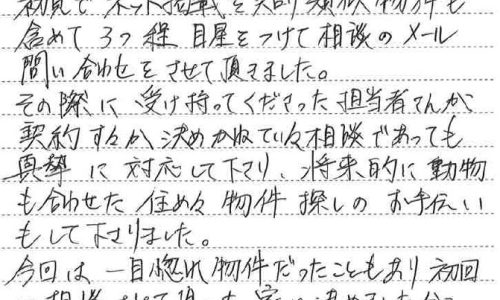 初見でネット掲載を矢印類似物件も
含めて3つ程目星をつけて相談のメール
問い合わせをさせて頂きました。
その際に受け持ってくださった担当者さんが
契約するか決めかねている相談であっても
真摯に対応して下さり、将来的に動物
も合わせた住める物件探しのお手伝い
もして下さりました。
今回は一目惚れ物件だったこともあり初回